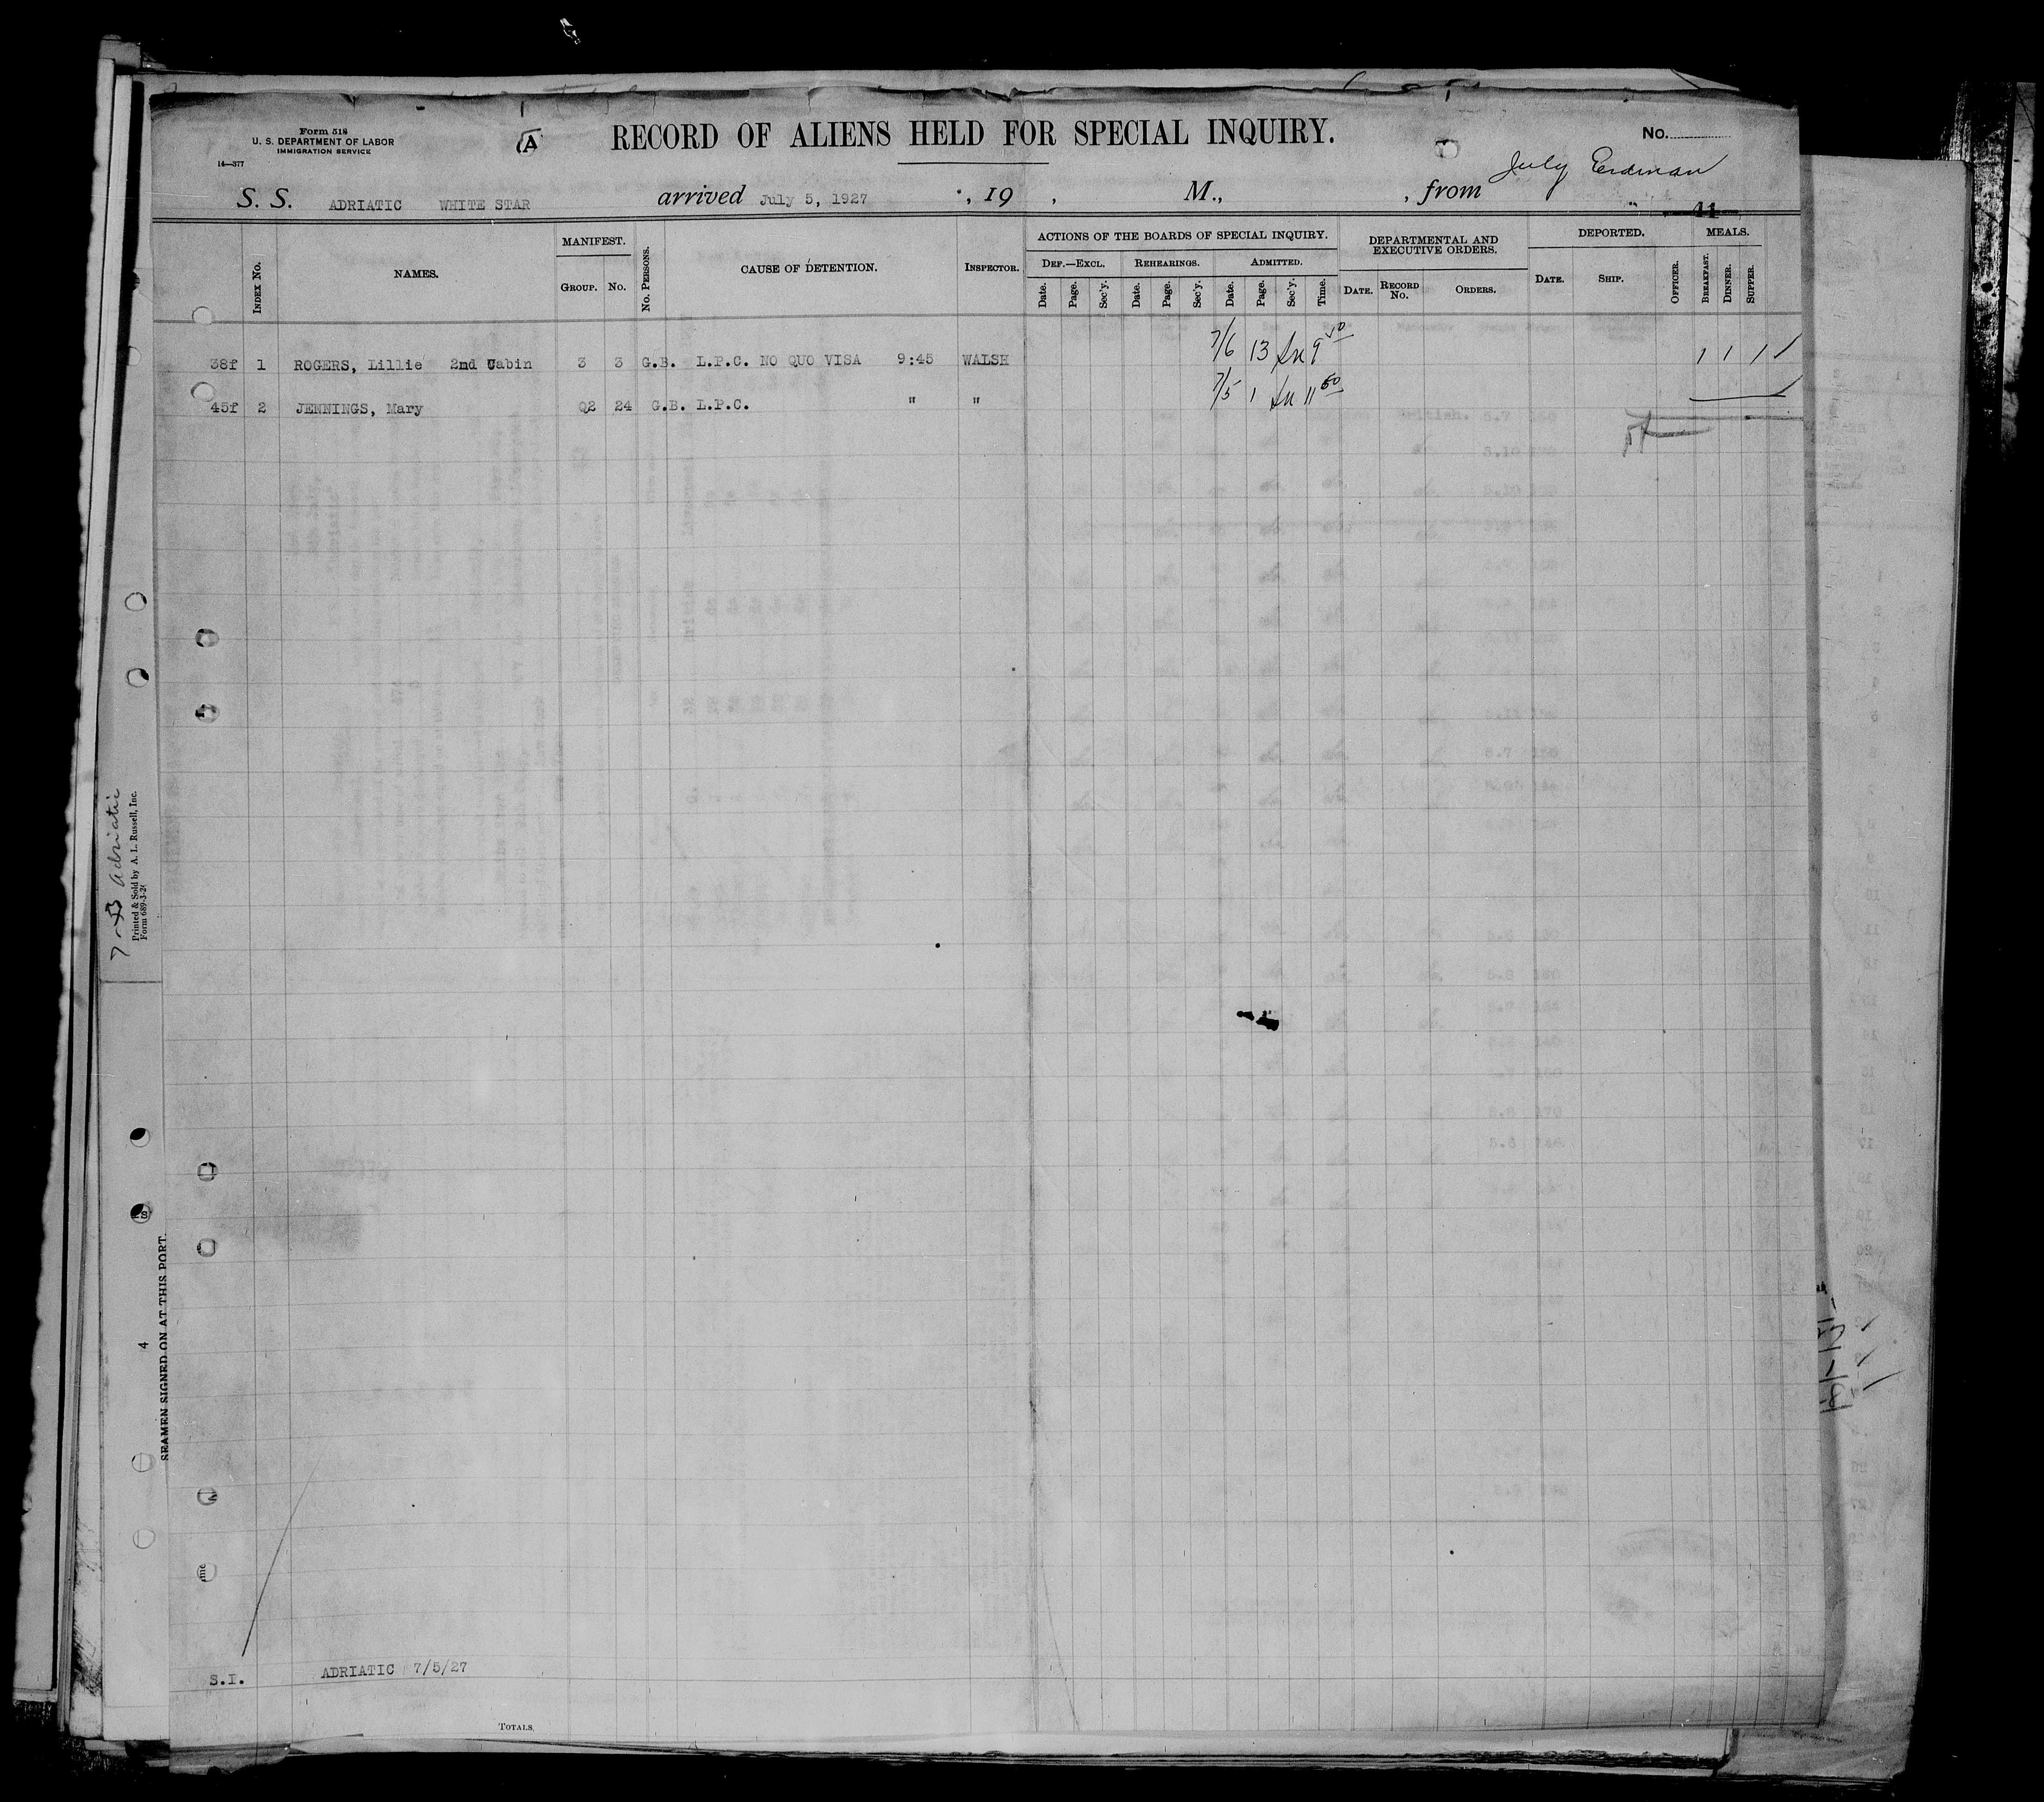 Form 518
U. S. DEPARTMENT OF LABOR
IMMIGRATION SERVICE
14—377
A
RECORD OF ALIENS HELD FOR SPECIAL INQUIRY.
No.
July Erdman
S. S. ADRIATIC WHITE STAR arrived July 5, 1927 , 19 , M., , from
11
INDEX No. NAMES. MANIFEST. GROUP. No. No. PERSONS. CAUSE OF DETENTION. INSPECTOR. ACTIONS OF THE BOARDS OF SPECIAL INQUIRY. DEF.—EXCL. Date. Page. Sec'y. REHEARINGS. Date. Page. Sec'y. ADMITTED. Date. Page. Sec'y. Time. DEPARTMENTAL AND EXECUTIVE ORDERS. DATE. RECORD No. ORDERS. DEPORTED. DATE. SHIP. OFFICER. MEALS. BREAKFAST. DINNER. SUPPER.
38f 1 ROGERS, Lillie 2nd Cabin 3 3 G.B. L.P.C. NO QUO VISA 9:45 WALSH 7/6 13 1 1 1
45f 2 JENNINGS, Mary Q2 24 G.B. L.P.C. " " 7/5 1 11 50
7-5 Adriatic
Printed & Sold by A. L. Russell, Inc.
Form 689-3-2
4 SEAMEN SIGNED ON AT THIS PORT.
S.I. ADRIATIC 7/5/27
TOTALS.